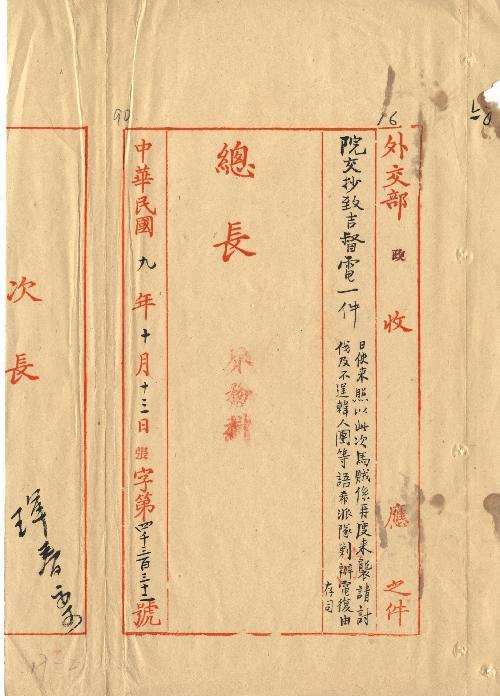 90
16
外交部 政 收 應 之件
院交抄致吉督電一件
日使來照以此次馬賊係再度來襲請討
伐及不逞韓人團等語希派隊剿辦電復由
存司
總長
中華民國九年十月十三日張字第四千三百三十一號
次長
琿春案